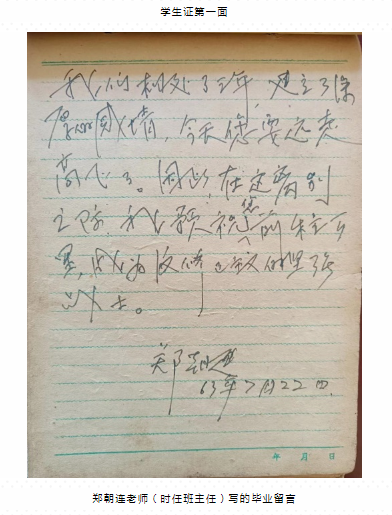 学生证第一面
我们相处了三年，建立了深
厚的感情，今天您要远走
高飞了。因此，在这离别
之际，我预祝您前程万
里，成为
士。
郑朝连
63年7月22日.
年 月 日
郑朝连老师（时任班主任）写的毕业留言